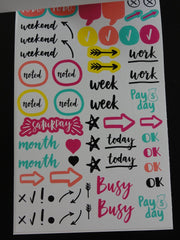 weekend
weekend
weekend
work
work
noted
noted
week
week
noted
noted
Pay $ day
Pay $ day
SATURDAY
month
today
OK
month
today
OK
OK
Busy
Busy